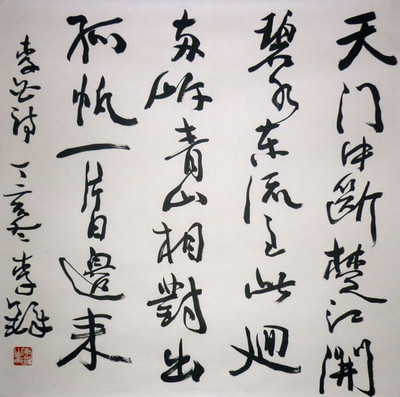 天门中斷楚江開
碧水东流至此迴
两岸青山相對出
孤帆一片日邊来
李白诗 丁亥 李鐸